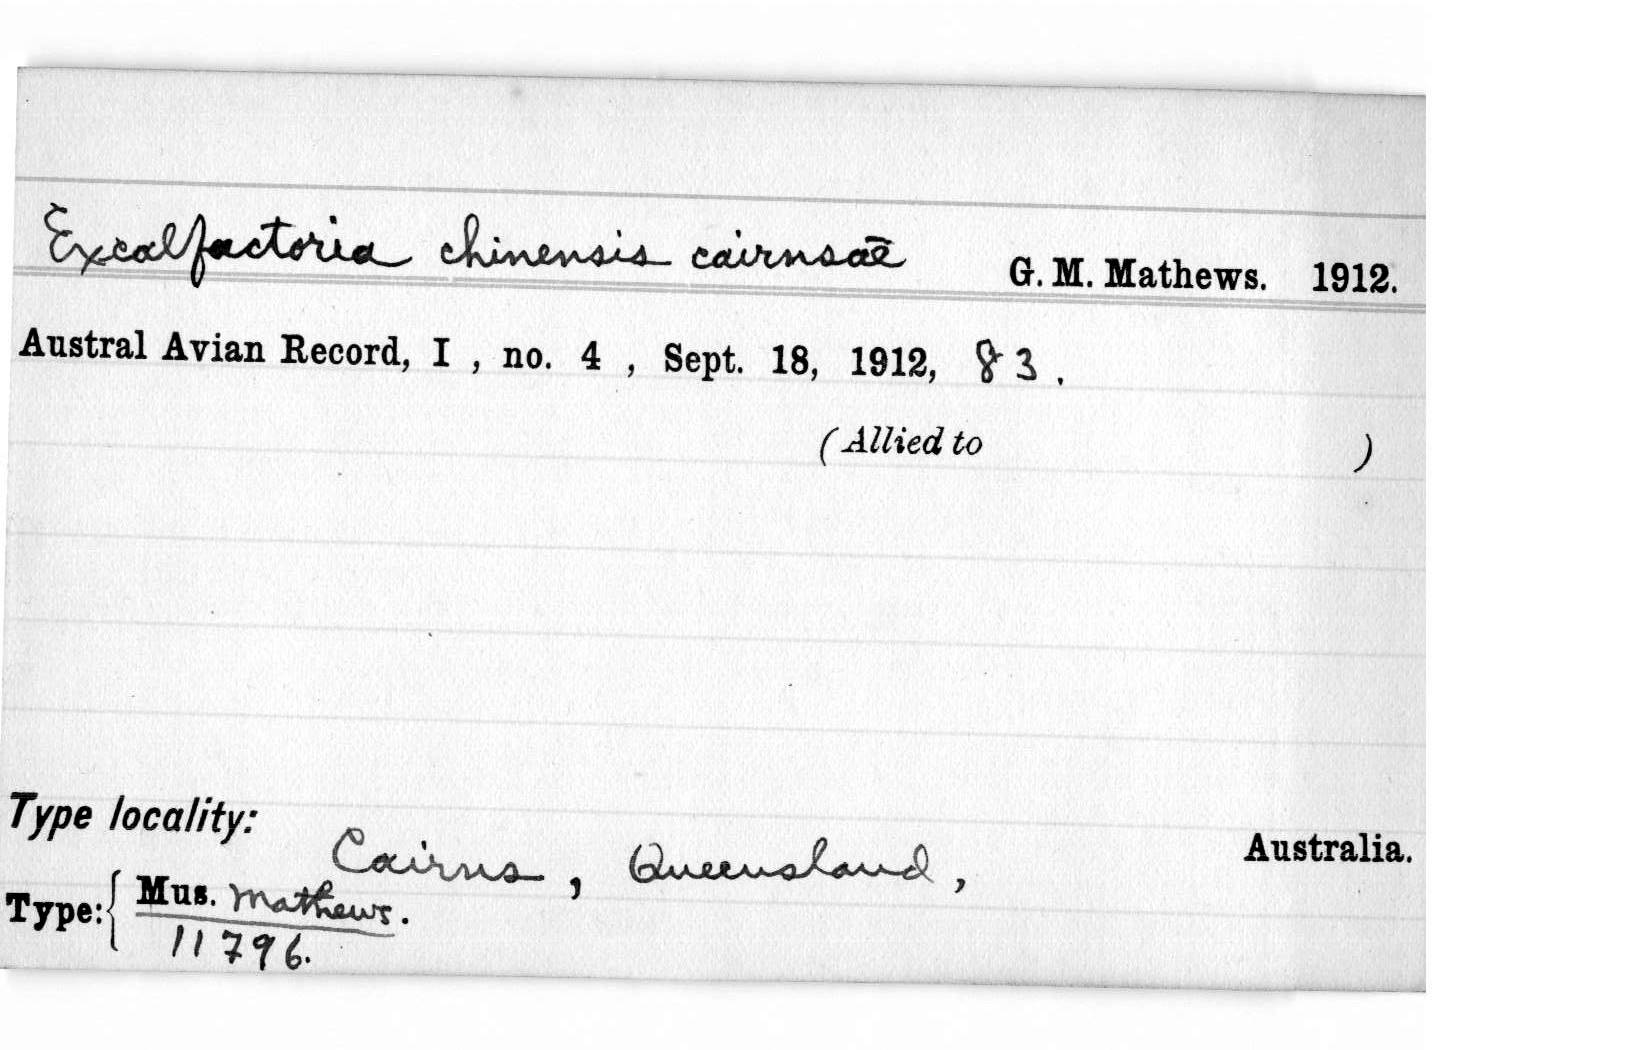 Excalfactoria chinensis cairnsae G. M. Mathews. 1912.
Austral Avian Record, I , no. 4 , Sept. 18, 1912, 83.
(Allied to )
Type locality:
Cairns, Queensland, Australia.
Type: { Mus. Mathews.
11796.